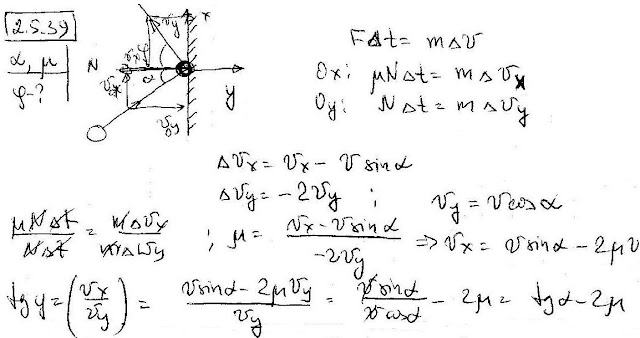 2.5.39
α, μ
φ-?
x
vy
vx
φ
N
α
vx
y
vy
FΔt = mΔv
Ox: μNΔt = mΔvx
Oy: NΔt = mΔvy
Δvx = vx - v sinα
Δvy = -2vy ; vy = v cosα
μNΔt / NΔt = mΔvx / mΔvy ; μ = (vx - v sinα) / -2vy ⇒ vx = v sinα - 2μv
tg φ = (vx / vy) = (v sinα - 2μvy) / vy = v sinα / v cosα - 2μ = tgα - 2μ